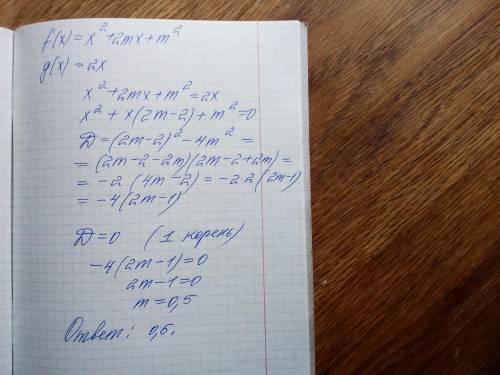 f(x) = x² + 2mx + m²
g(x) = 2x
x² + 2mx + m² = 2x
x² + x(2m-2) + m² = 0
D = (2m-2)² - 4m² =
= (2m-2-2m)(2m-2+2m) =
= -2(4m-2) = -2·2(2m-1)
= -4(2m-1)
D = 0 (1 корень)
-4(2m-1) = 0
2m-1 = 0
m = 0,5
Ответ: 0,5.